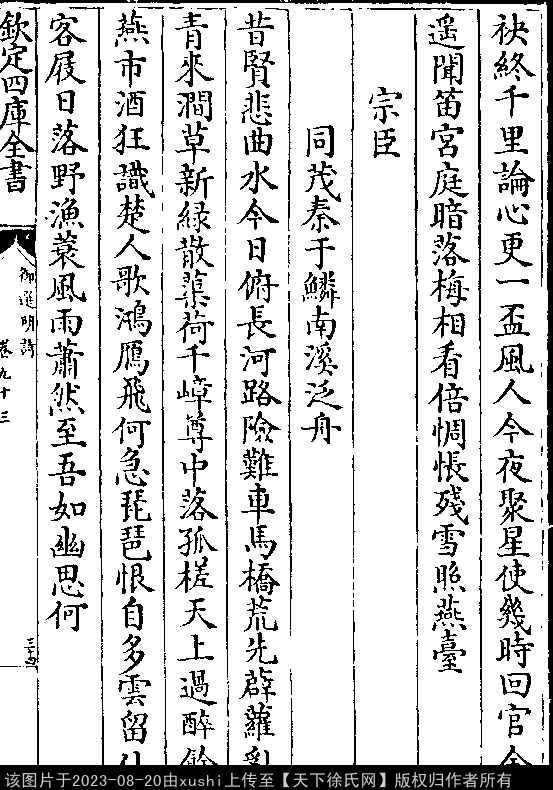 袂終千里論心更一盃風人今夜聚星使幾時回官
遥聞笛宮庭暗落梅相看倍惆悵殘雪照燕臺
宗臣
同茂秦于鱗南溪泛舟
昔賢悲曲水今日俯長河路險難車馬橋荒先薜蘿亂
青來澗草新緑散蕖荷千嶂尊中落孤槎天上過醉餘
燕市酒狂識楚人歌鴻鴈飛何急琵琶恨自多雲留
客屐日落野漁蓑風雨蕭然至吾如幽思何
欽定四庫全書
御選明詩
卷九十三
三十五
该图片于2023-08-20由xushi上传至【天下徐氏网】版权归作者所有